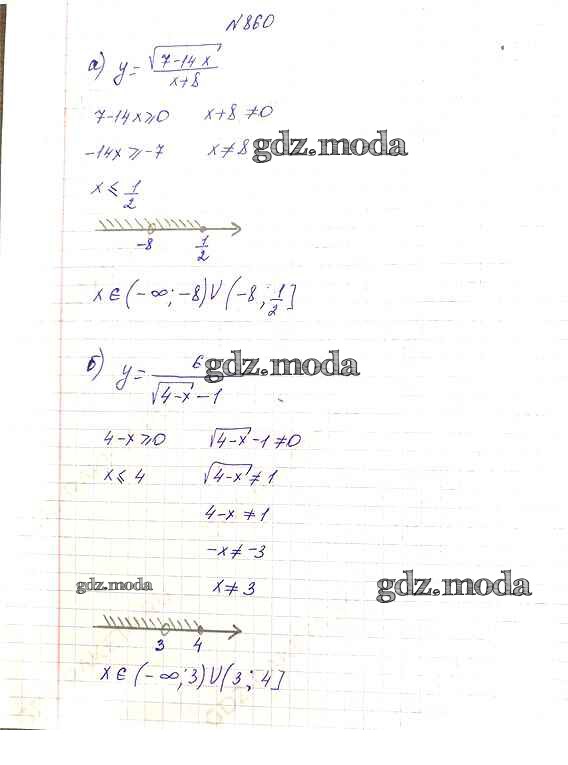 №860
а) y = √(7-14x) / (x+8)
7-14x ⩾ 0 x+8 ≠ 0
-14x ⩾ -7 x ≠ 8 gdz.moda
x ⩽ 1/2
-8 1/2
x ∈ (-∞; -8) ∪ (-8; 1/2]
б) y = 6 / (√(4-x) - 1) gdz.moda
4-x ⩾ 0 √(4-x) - 1 ≠ 0
x ⩽ 4 √(4-x) ≠ 1
4-x ≠ 1
-x ≠ -3
gdz.moda x ≠ 3 gdz.moda
3 4
x ∈ (-∞; 3) ∪ (3; 4]